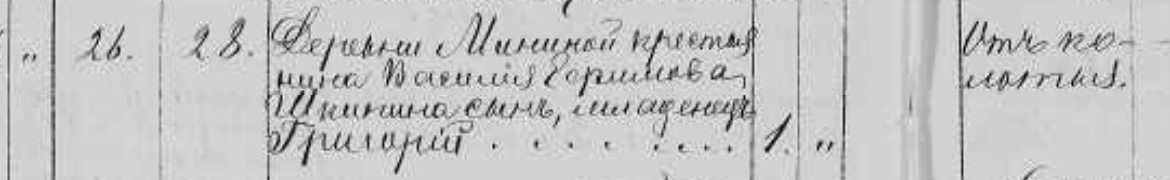 " 26. 28. Деревни Мининой крестья
нина Василія Ефимова
Шкинина сынъ, младенецъ
Григорій . . . . . . . . 1. "
Отъ ко-
лотья.